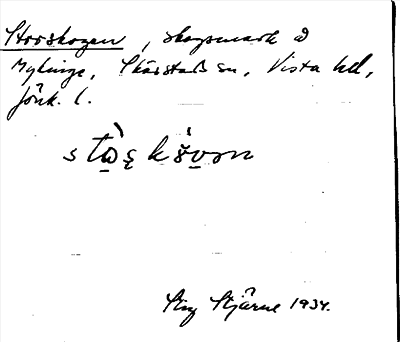 Storskogen, skogsmark å
Myhinge, Skärstads sn, Vista hd,
Jönk. l.
Stig Stjärne 1934.